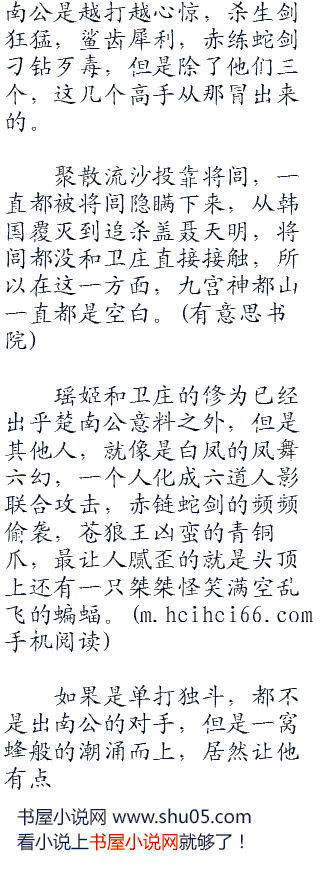 南公是越打越心惊，杀生剑
狂猛，鲨齿犀利，赤练蛇剑
刁钻歹毒，但是除了他们三
个，这几个高手从那冒出来
的。
聚散流沙投靠将闾，一
直都被将闾隐瞒下来，从韩
国覆灭到追杀盖聂天明，将
闾都没和卫庄直接接触，所
以在这一方面，九宫神都山
一直都是空白。(有意思书
院)
瑶姬和卫庄的修为已经
出乎楚南公意料之外，但是
其他人，就像是白凤的凤舞
六幻，一个人化成六道人影
联合攻击，赤链蛇剑的频频
偷袭，苍狼王凶蛮的青铜
爪，最让人腻歪的就是头顶
上还有一只桀桀怪笑满空乱
飞的蝙蝠。(m.hcihci66.com
手机阅读)
如果是单打独斗，都不
是出南公的对手，但是一窝
蜂般的潮涌而上，居然让他
有点
书屋小说网 www.shu05.com
看小说上书屋小说网就够了！